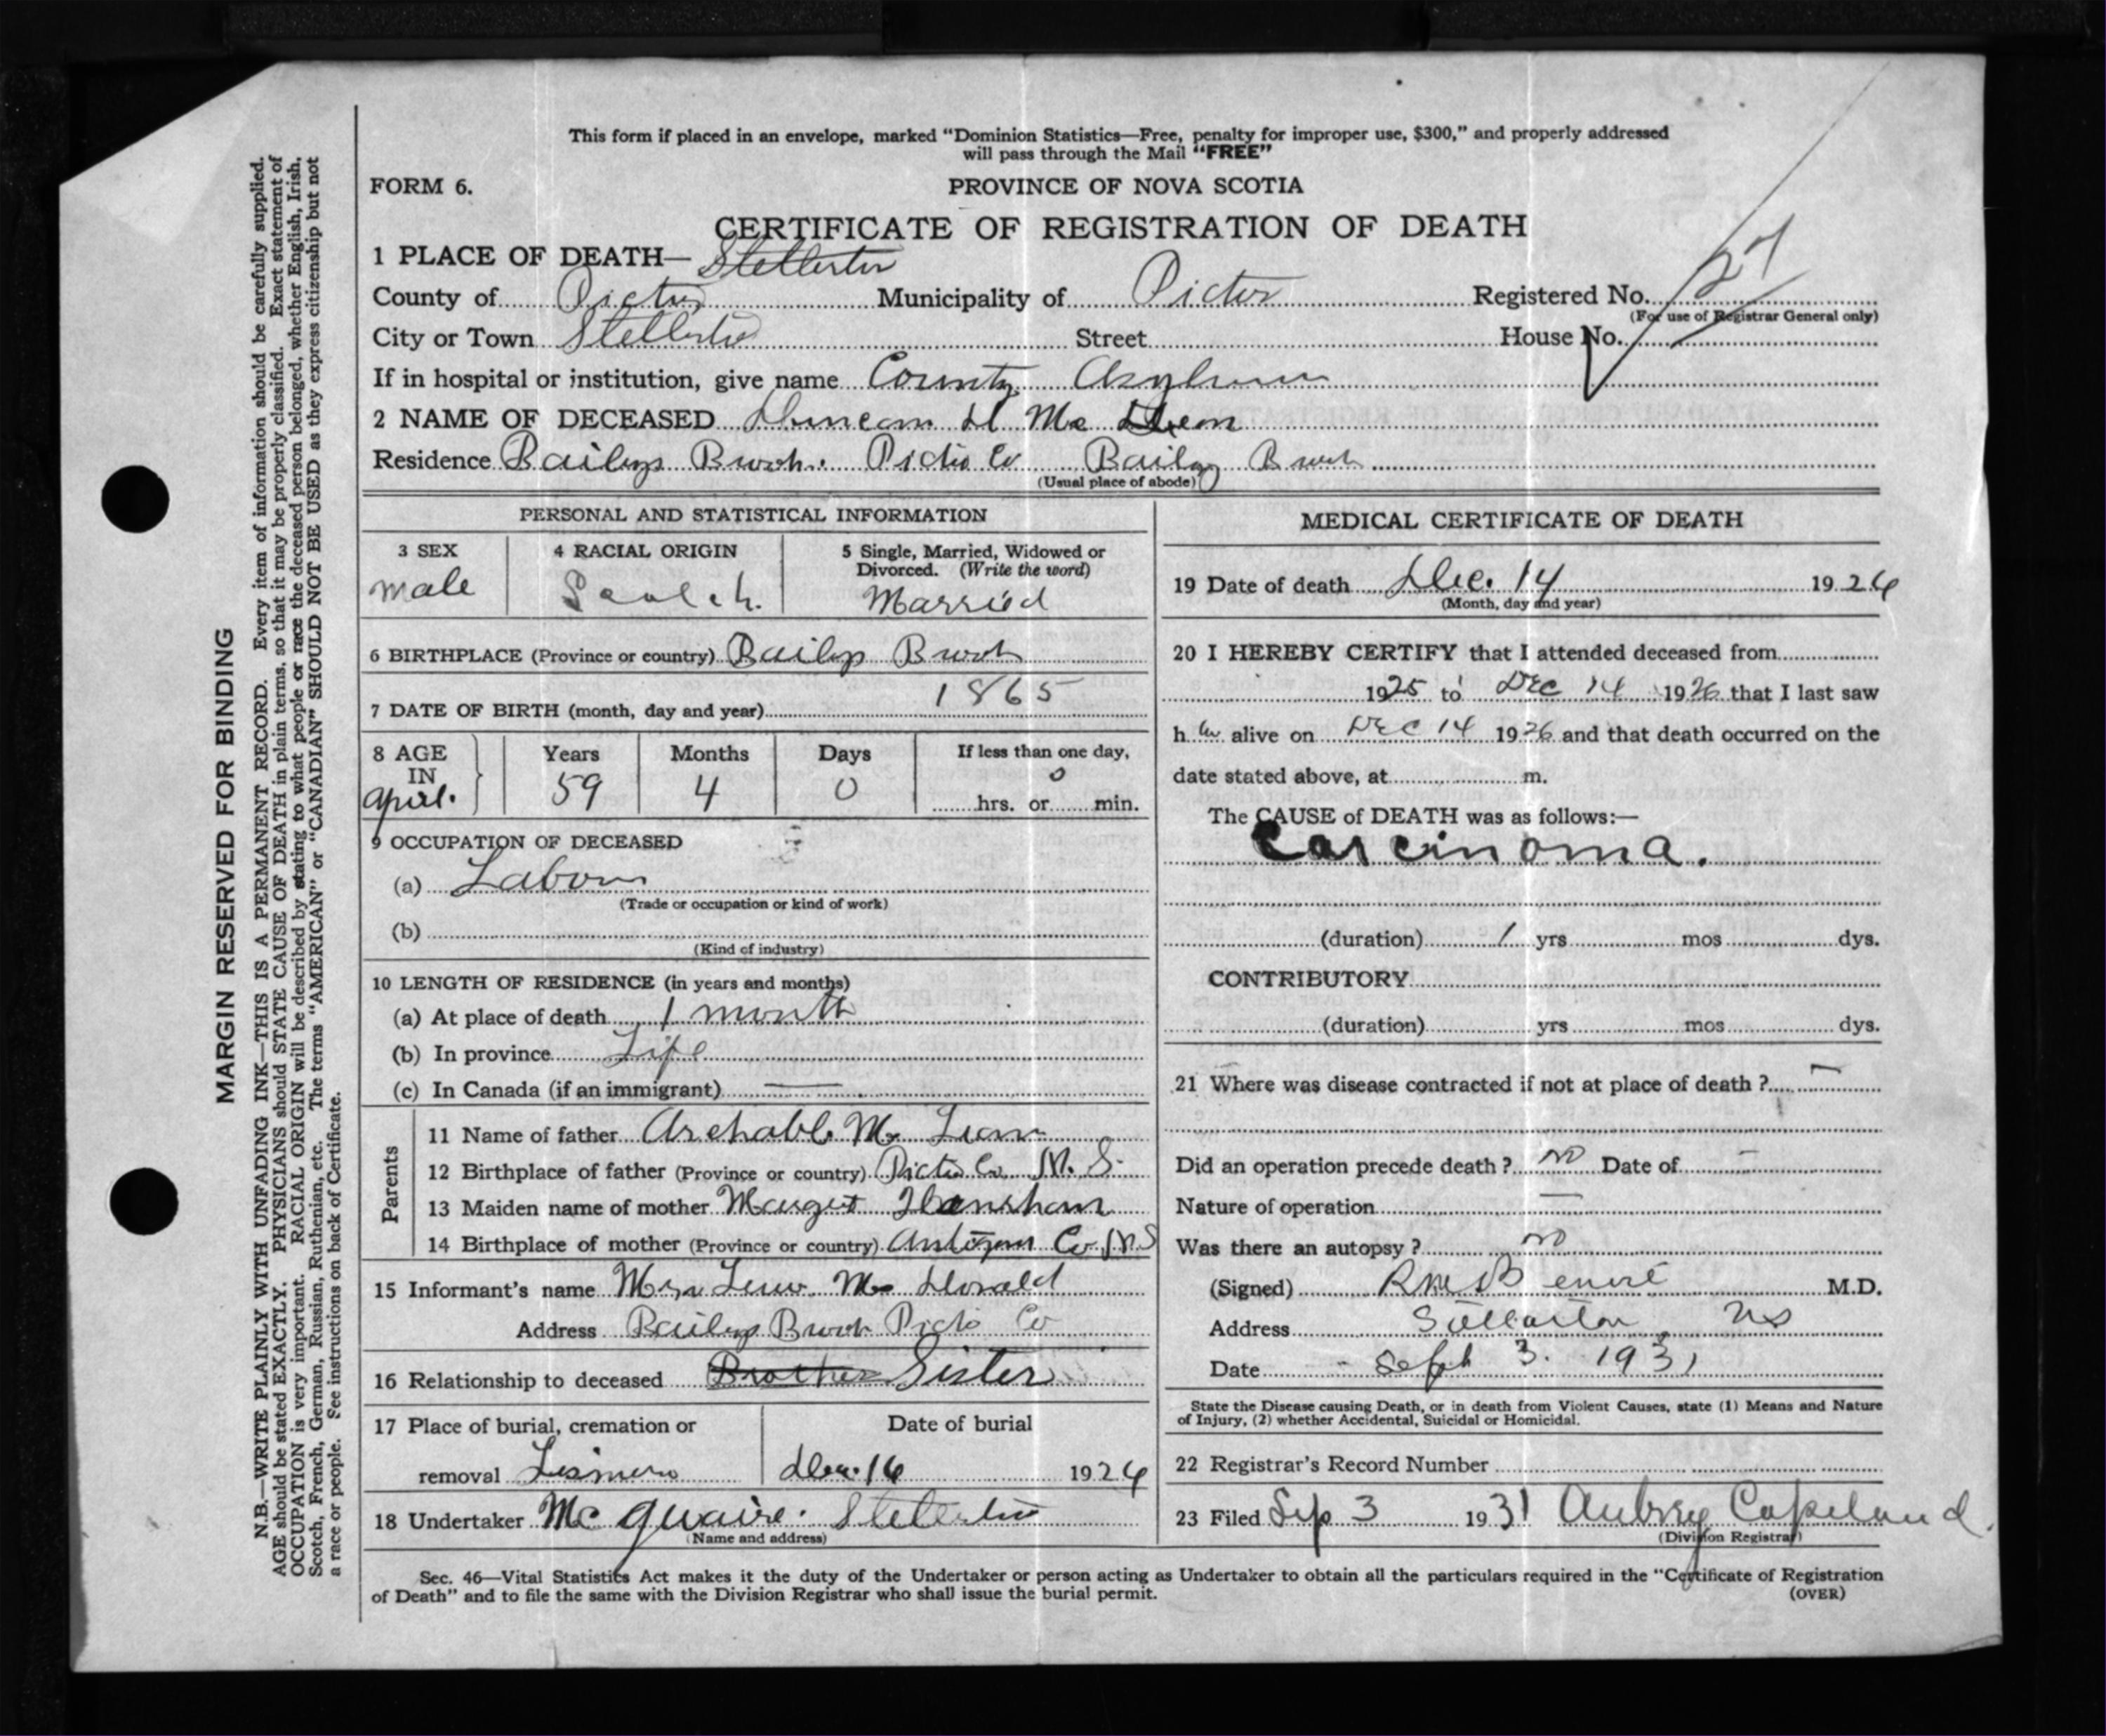 This form if placed in an envelope, marked "Dominion Statistics—Free, penalty for improper use, $300," and properly addressed
will pass through the Mail "FREE"
FORM 6.
PROVINCE OF NOVA SCOTIA
CERTIFICATE OF REGISTRATION OF DEATH
1 PLACE OF DEATH— Stellarton
County of Pictou Municipality of Pictou Registered No. 27
(For use of Registrar General only)
City or Town Stellarton Street House No.
If in hospital or institution, give name County Asylum
2 NAME OF DECEASED Duncan D Mc Lean
Residence Baileys Brook. Pictou Co Bailey Brook
(Usual place of abode)
PERSONAL AND STATISTICAL INFORMATION
3 SEX
male
4 RACIAL ORIGIN
Scotch.
5 Single, Married, Widowed or
Divorced. (Write the word)
Married
6 BIRTHPLACE (Province or country) Baileys Brook
7 DATE OF BIRTH (month, day and year) 1865
8 AGE Years Months Days If less than one day,
IN 59 4 0 0
April. hrs. or min.
9 OCCUPATION OF DECEASED
(a) Labour
(Trade or occupation or kind of work)
(b)
(Kind of industry)
10 LENGTH OF RESIDENCE (in years and months)
(a) At place of death 1 month
(b) In province Life
(c) In Canada (if an immigrant) —
Parents
11 Name of father Archabl. Mc Lean
12 Birthplace of father (Province or country) Pictou Co N. S.
13 Maiden name of mother Margret
14 Birthplace of mother (Province or country) Co N.S
15 Informant's name Mrs Mc Donald
Address Baileys Brook Pictou Co
16 Relationship to deceased Brother Sister
17 Place of burial, cremation or
removal Lismore
Date of burial
Dec. 16 1926
18 Undertaker Mc Quaire. Stellarton
(Name and address)
MEDICAL CERTIFICATE OF DEATH
19 Date of death Dec. 14 1926
(Month, day and year)
20 I HEREBY CERTIFY that I attended deceased from
1925 to DEC 14 1926 that I last saw
h im alive on DEC 14 1926 and that death occurred on the
date stated above, at m.
The CAUSE of DEATH was as follows:—
Carcinoma.
(duration) 1 yrs mos dys.
CONTRIBUTORY
(duration) yrs mos dys.
21 Where was disease contracted if not at place of death ? —
Did an operation precede death ? no Date of —
Nature of operation —
Was there an autopsy ? no
(Signed) M.D.
Address Stellarton NS
Date Sept 3. 1931
State the Disease causing Death, or in death from Violent Causes, state (1) Means and Nature
of Injury, (2) whether Accidental, Suicidal or Homicidal.
22 Registrar's Record Number
23 Filed Sep 3 1931 Aubrey Copeland.
(Division Registrar)
Sec. 46—Vital Statistics Act makes it the duty of the Undertaker or person acting as Undertaker to obtain all the particulars required in the "Certificate of Registration
of Death" and to file the same with the Division Registrar who shall issue the burial permit.
(OVER)
MARGIN RESERVED FOR BINDING
N.B.—WRITE PLAINLY WITH UNFADING INK—THIS IS A PERMANENT RECORD. Every item of information should be carefully supplied.
AGE should be stated EXACTLY. PHYSICIANS should STATE CAUSE OF DEATH in plain terms, so that it may be properly classified. Exact statement of
OCCUPATION is very important. RACIAL ORIGIN will be described by stating to what people or race the deceased person belonged, whether English, Irish,
Scotch, French, German, Russian, Ruthenian, etc. The terms "AMERICAN" or "CANADIAN" SHOULD NOT BE USED as they express citizenship but not
a race or people. See instructions on back of Certificate.